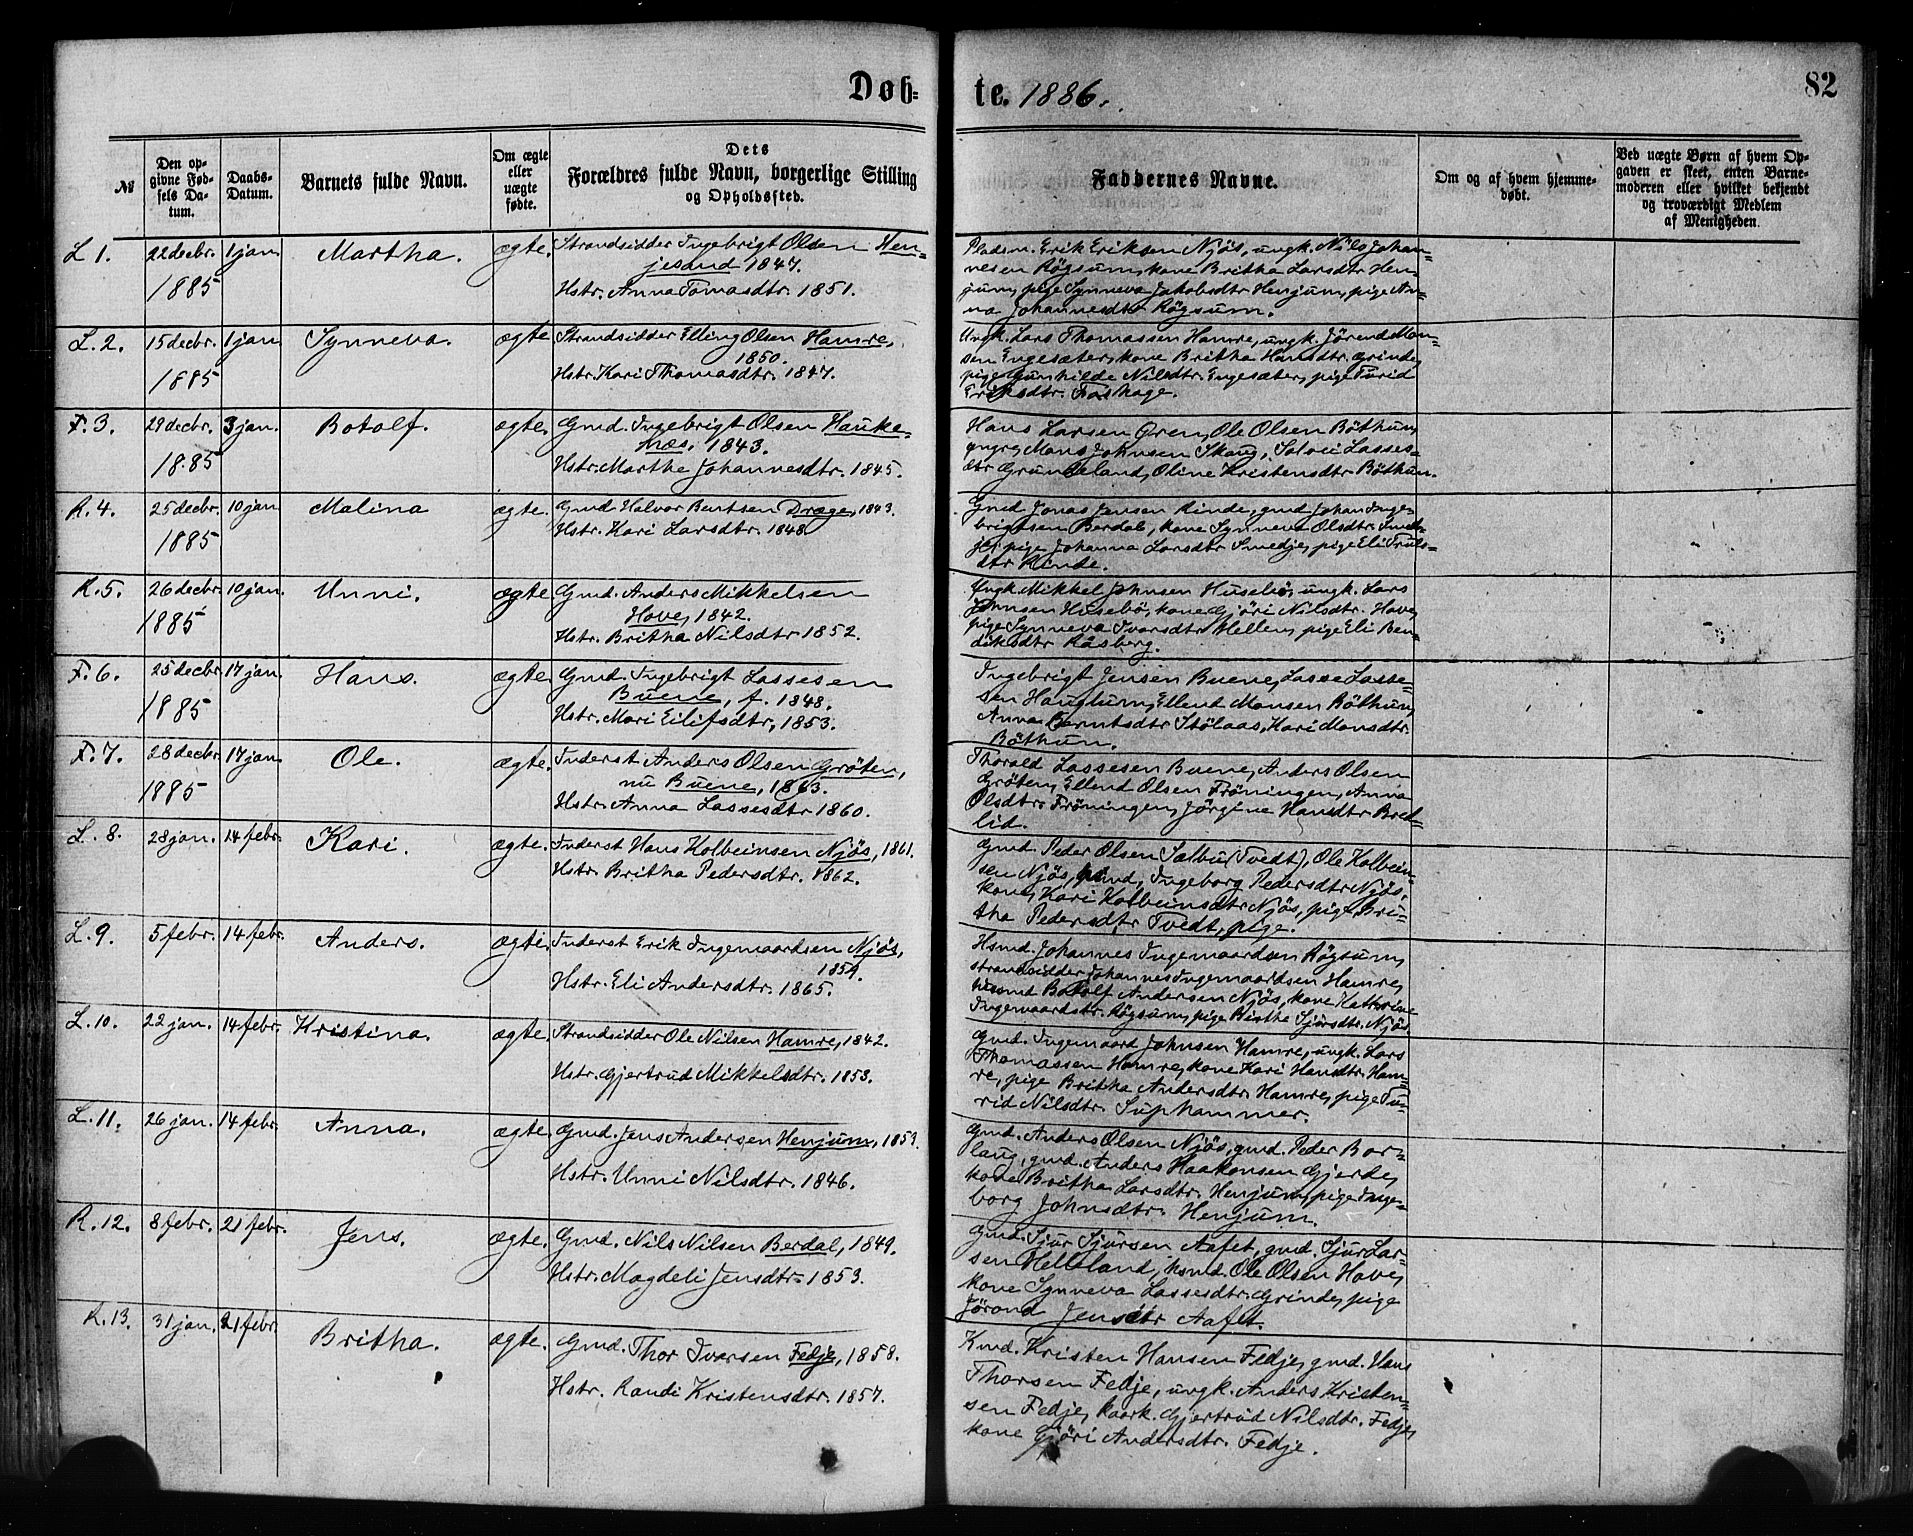 Døb-
te. 1886.
82
№
Den op-
givne Fød-
sels Da-
tum.
Daabs-
Datum.
Barnets fulde Navn.
Om ægte
eller
uægte
fødte.
Dets
Forældres fulde Navn, borgerlige Stilling
og Opholdssted.
Faddernes Navne.
Om og af hvem hjemme-
døbt.
Ved uægte Børn af hvem Op-
gaven er skeet, enten Barne-
moderen eller hvilket bekjendt
og troværdigt Medlem
af Menigheden.
L 1. 22 decbr. 1 jan. Martha. ægte. Strandsidder Ingebrigt Olsen Hen-
1885 jesand 1847.
Hstr. Anna Tomasdtr. 1851.
Pladsm. Erik Eriksen Njös, ungk. Nils Johan-
nesen Rögsum, kone Britha Larsdtr. Hen-
jum, pige Synneva Jakobsdtr. Henjum, pige An-
na Johannesdtr Rögsum.
L. 2. 15 decbr. 1 jan. Synneva. ægte Strandsidder Elling Olsen Hamre,
1885 1850.
Hstr. Kari Thomasdtr. 1847.
Ungk. Lars Thomassen Hamre, ungk. Jörend Mon-
sen Engesæter, kone Britha Hansdtr. Grinde,
pige Gunhilde Nilsdtr. Engesæter, pige Turid
Eriksdtr. Foshage.
F. 3. 29 decbr. 3 jan. Botolf. ægte. Gmd. Ingebrigt Olsen Hauke-
1885 næs, 1843.
Hstr. Marthe Johannesdtr. 1845.
Hans Larsen Gren, Ole Olsen Böthun,
Mons Johnsen Skaug, Solvei Lasses-
dtr Grundeland, Oline Kristensdtr Böthun.
R. 4. 25 decbr. 10 jan. Malina ægte. Gmd Halvor Bentsen Dræge, 1843.
1885 Hstr. Kari Larsdtr. 1848.
Gmd Jonas Jensen Rinde, gmd Johan Inge-
brigtsen Berdal, kone Synneva Olsdtr. Smed-
je, pige Johanna Larsdtr Smedje, pige Eli Truls-
dtr Rinde.
R. 5. 26 decbr. 10 jan. Unni. ægte Gmd. Anders Mikkelsen
1885 Hove, 1842.
Hstr. Britha Nilsdtr 1852.
Ungk. Mikkel Johnsen Husebö, ungk. Lars
Johnsen Husebö, kone Gjöri Nilsdtr. Hove,
pige Synneva Ivarsdtr Hellen, pige Eli Ben-
diksdtr Råsberg.
F. 6. 25 decbr 17 jan. Hans. ægte. Gmd. Ingebrigt Lassesen
1885 Buene, f. 1848.
Hstr. Mari Eilifsdtr, 1853.
Ingebrigt Jensen Buene, Lasse Lasse-
sen Hauglum, Ellend Monsen Böthun,
Anna Berntsdtr Stölaas, Kari Monsdtr.
Böthun.
F. 7. 28 decbr. 17 jan. Ole. ægte. Inderst Anders Olsen Gröten,
1885 nu Buene, 1863.
Hstr. Anna Lassesdtr 1860.
Thorald Lassesen Buene, Anders Olsen
Gröten, Ellend Olsen Fröningen, Anna
Olsdtr. Fröningen, Jörgine Hansdtr Bred-
lid.
L. 8. 28 jan. 14 febr. Kari. ægte. Inderst Hans Kolbeinsen Njös, 1861.
Hstr. Britha Pedersdtr. 1862.
Gmd. Peder Olsen Sælbu (Tvedt), Ole Kolbein-
sen Njös, gmd, Ingeborg Pedersdtr Njös,
kone, Kari Kolbeinsdtr Njös, pige, Bri-
tha Pedersdtr Tvedt, pige.
L. 9. 5 febr. 14 febr. Anders. ægte. Inderst Erik Ingemaardsen Njös,
1859.
Hstr. Eli Andersdtr. 1865.
Hsmd. Johannes Ingemaardsen Rögsum,
strandsidder Johannes Ingemaardsen Hamre,
husmd Botolf Andersen Njös, kone Kathrine
Ingemaardsdtr. Rögsum, pige Birthe Sjursdtr. Njös
L. 10. 22 jan. 14 febr. Kristina. ægte. Strandsidder Ole Nilsen Hamre, 1842.
Hstr. Gjertrud Mikkelsdtr. 1853.
Gmd. Ingemaard Johnsen Hamre, ungk. Lars
Thomassen Hamre, kone Kari Hansdtr. Ham-
re, pige Britha Andersdtr. Hamre, pige Tu-
rid Nilsdtr. Suphammer.
L. 11. 26 jan. 14 febr. Anna. ægte. Gmd. Jens Andersen Henjum, 1853.
Hstr. Unni Nilsdtr. 1846.
Gmd. Anders Olsen Njös, gmd. Peder Bor-
laug, gmd. Anders Haakonsen Gjerde,
kone Britha Larsdtr. Henjum, pige Inge-
borg Johnsdtr. Henjum.
R. 12. 8 febr. 21 febr. Jens. ægte. Gmd. Nils Nilsen Berdal, 1849.
Hstr. Magdeli Jensdtr 1853.
Gmd. Sjur Sjursen Aafet, gmd. Sjur Lar-
sen Helleland, hsmd. Ole Olsen Hove,
kone Synneva Lassesdtr. Grinde, pige
Jörond Jensdtr Aafet.
R. 13. 31 jan. 21 febr. Britha. ægte. Gmd. Thor Ivarsen Fedje, 1858.
Hstr. Randi Kristensdtr. 1857.
Kmd. Kristen Hansen Fedje, gmd. Hans
Thorsen Fedje, ungk. Anders Kristen-
sen Fedje, kaark. Gjertrud Nilsdtr. Fedje,
kone Gjöri Andersdtr. Fedje.